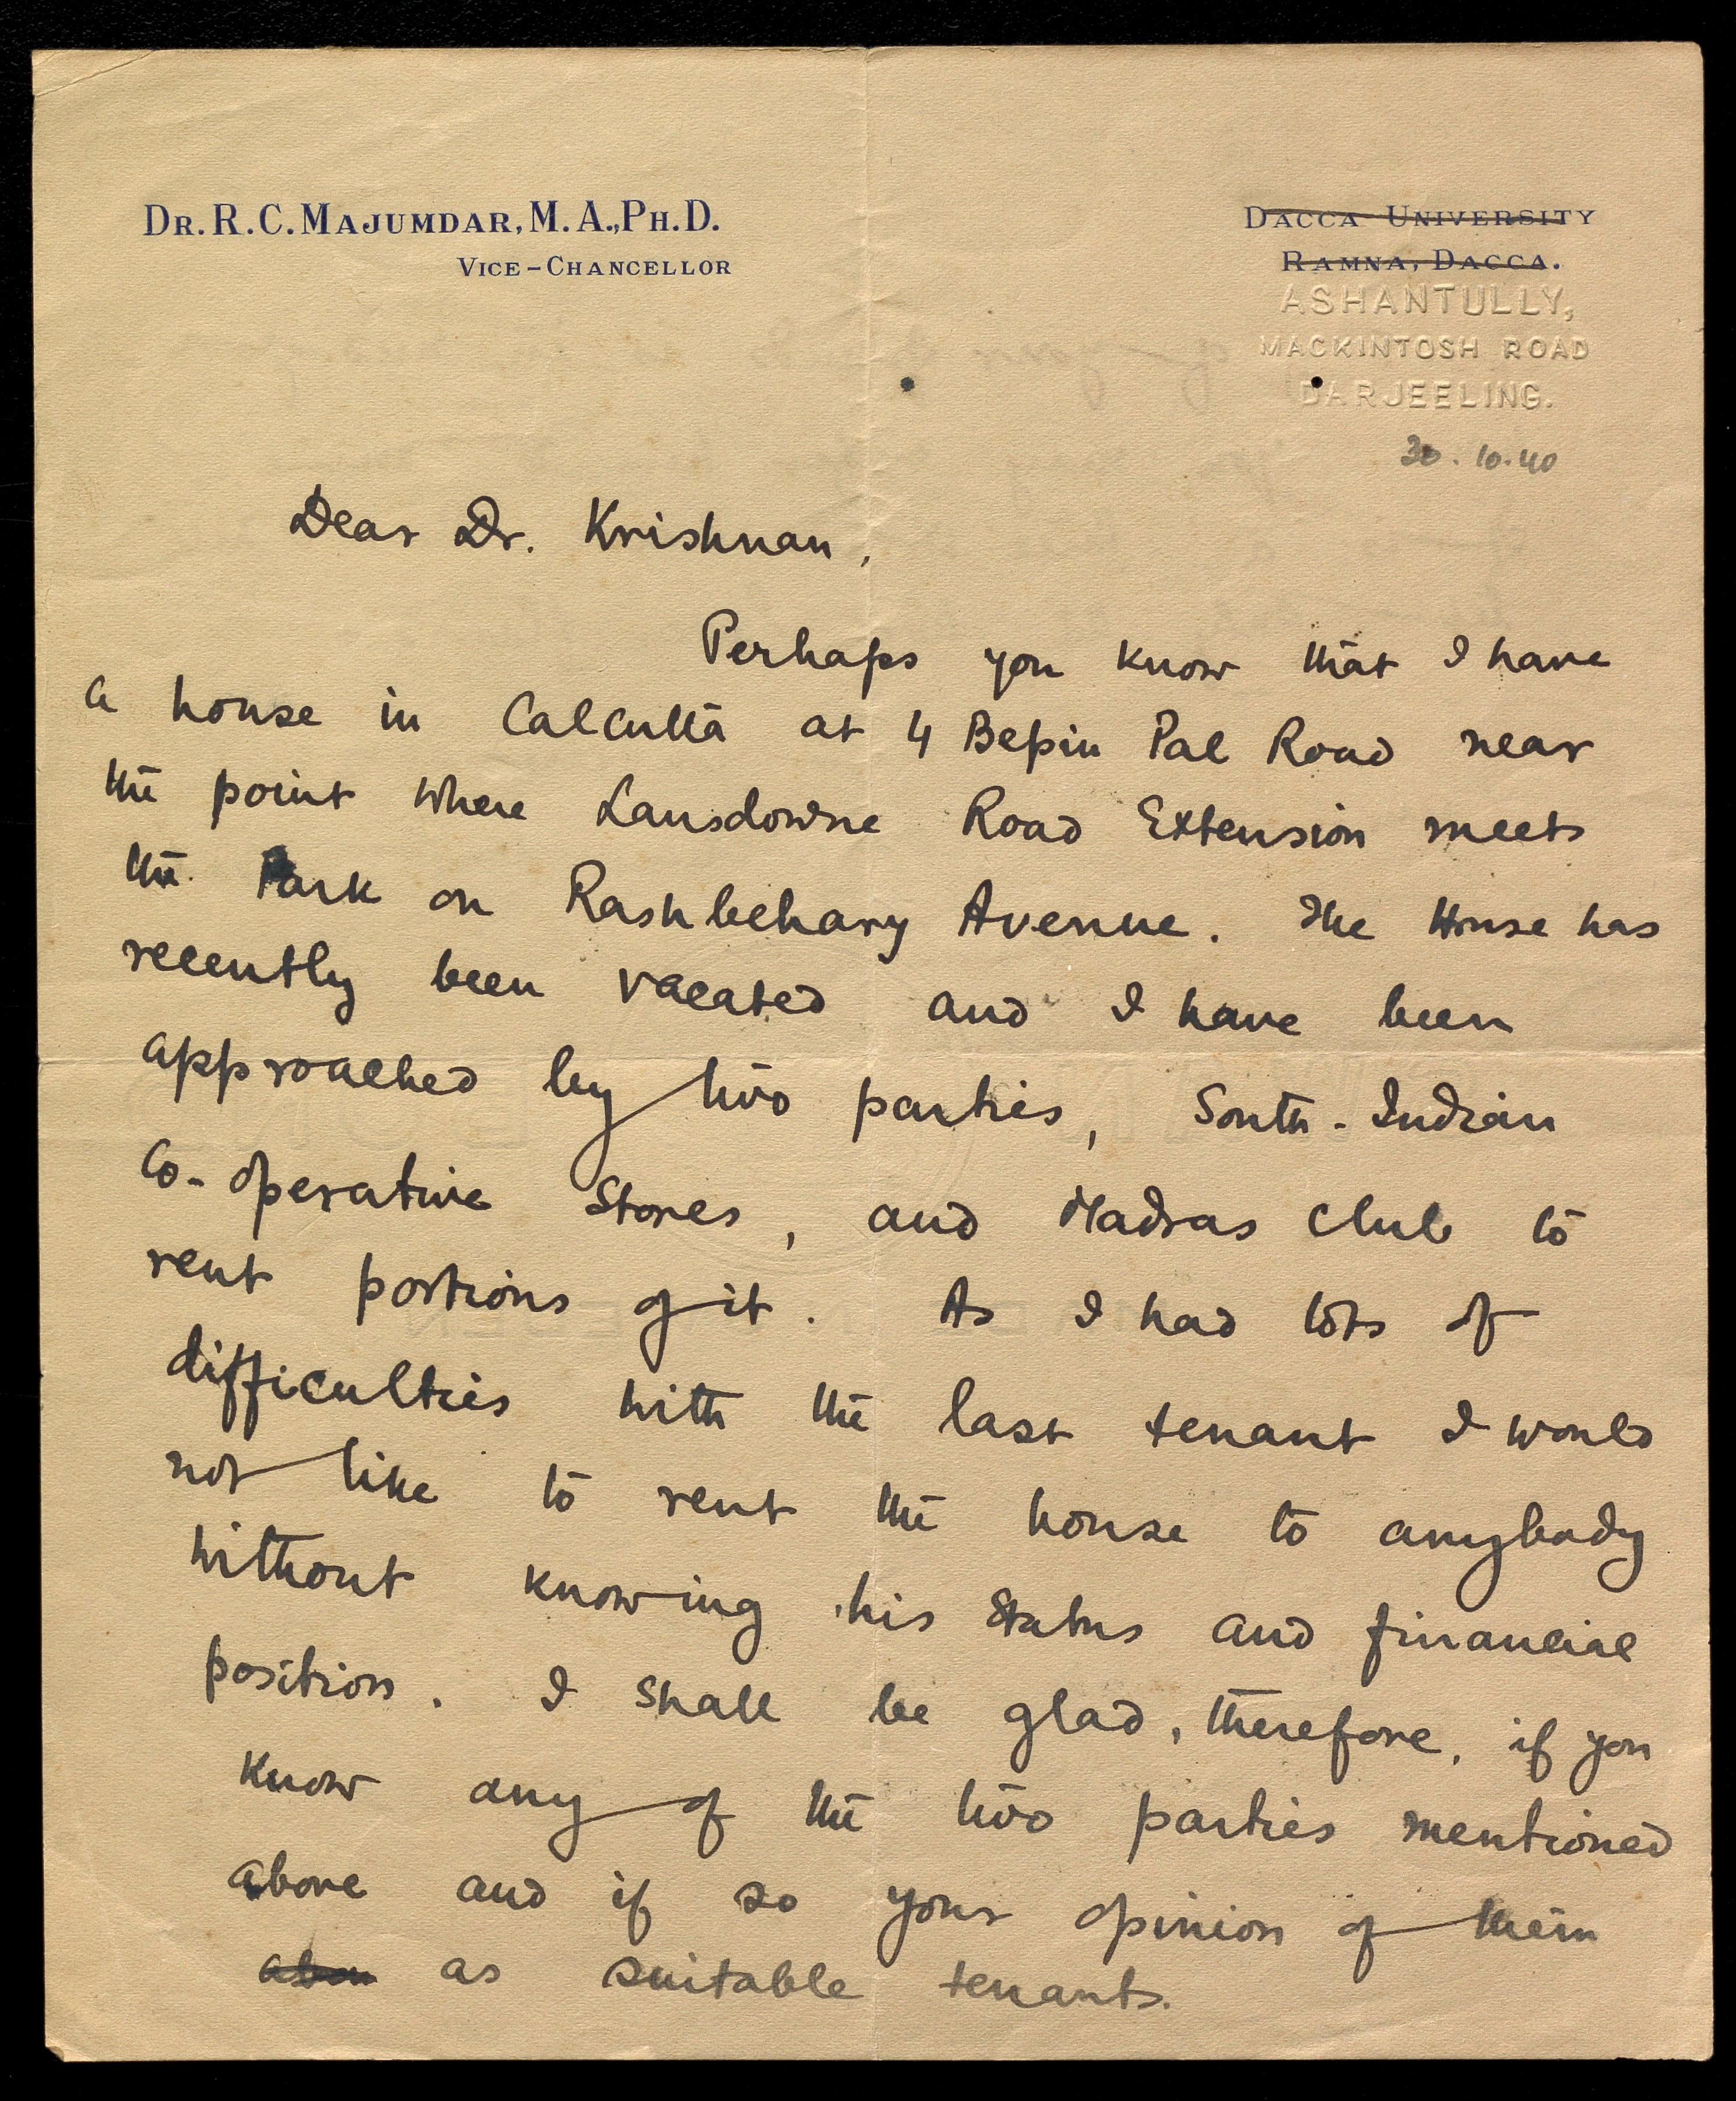 DR. R. C. MAJUMDAR, M. A., PH. D.
VICE-CHANCELLOR
DACCA UNIVERSITY
RAMNA, DACCA.
ASHANTULLY,
MACKINTOSH ROAD
DARJEELING.
30. 10. 40
Dear Dr. Krishnan,
Perhaps you know that I have
a house in Calcutta at 4 Bepin Pal Road near
the point where Lansdowne Road Extension meets
the Park on Rashbehary Avenue. The House has
recently been vacated and I have been
approached by two parties, South-Indian
Co-operative Stores, and Madras Club to
rent portions of it. As I had lots of
difficulties with the last tenant I would
not like to rent the house to anybody
without knowing his status and financial
position. I shall be glad, therefore, if you
know any of the two parties mentioned
above and if so your opinion of them
as suitable tenants.